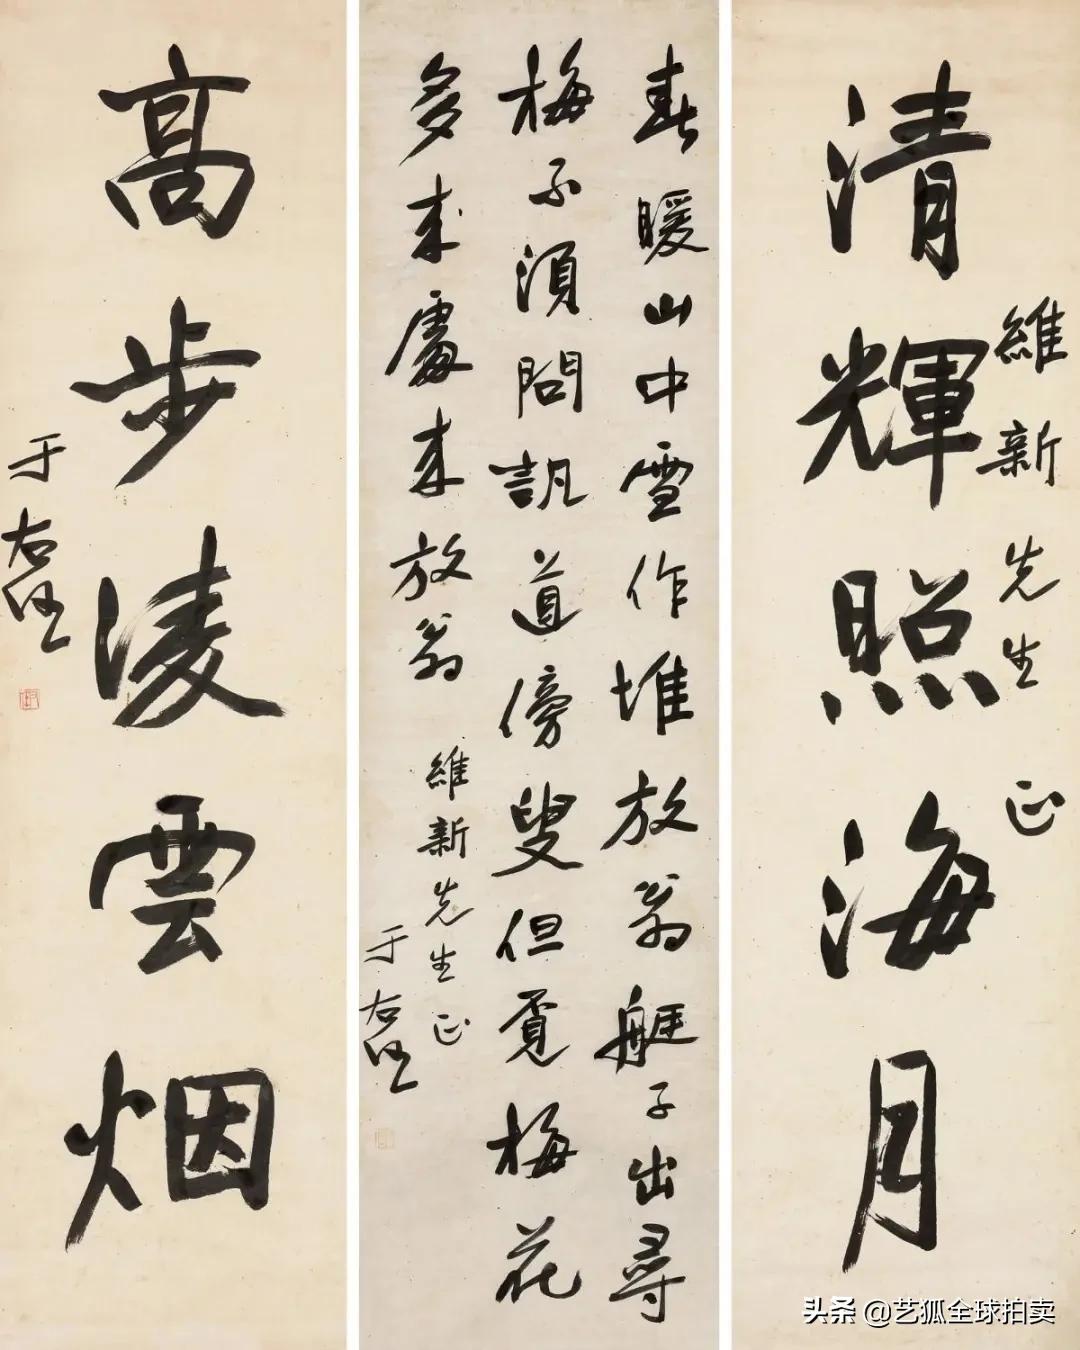 維新先生正
清輝照海月
春暖山中雪作堆放翁艇子出尋
梅不須問訊道傍叟但覓梅花
多来處来放翁
維新先生正
于右任
高步凌雲烟
于右任
头条 @艺狐全球拍卖